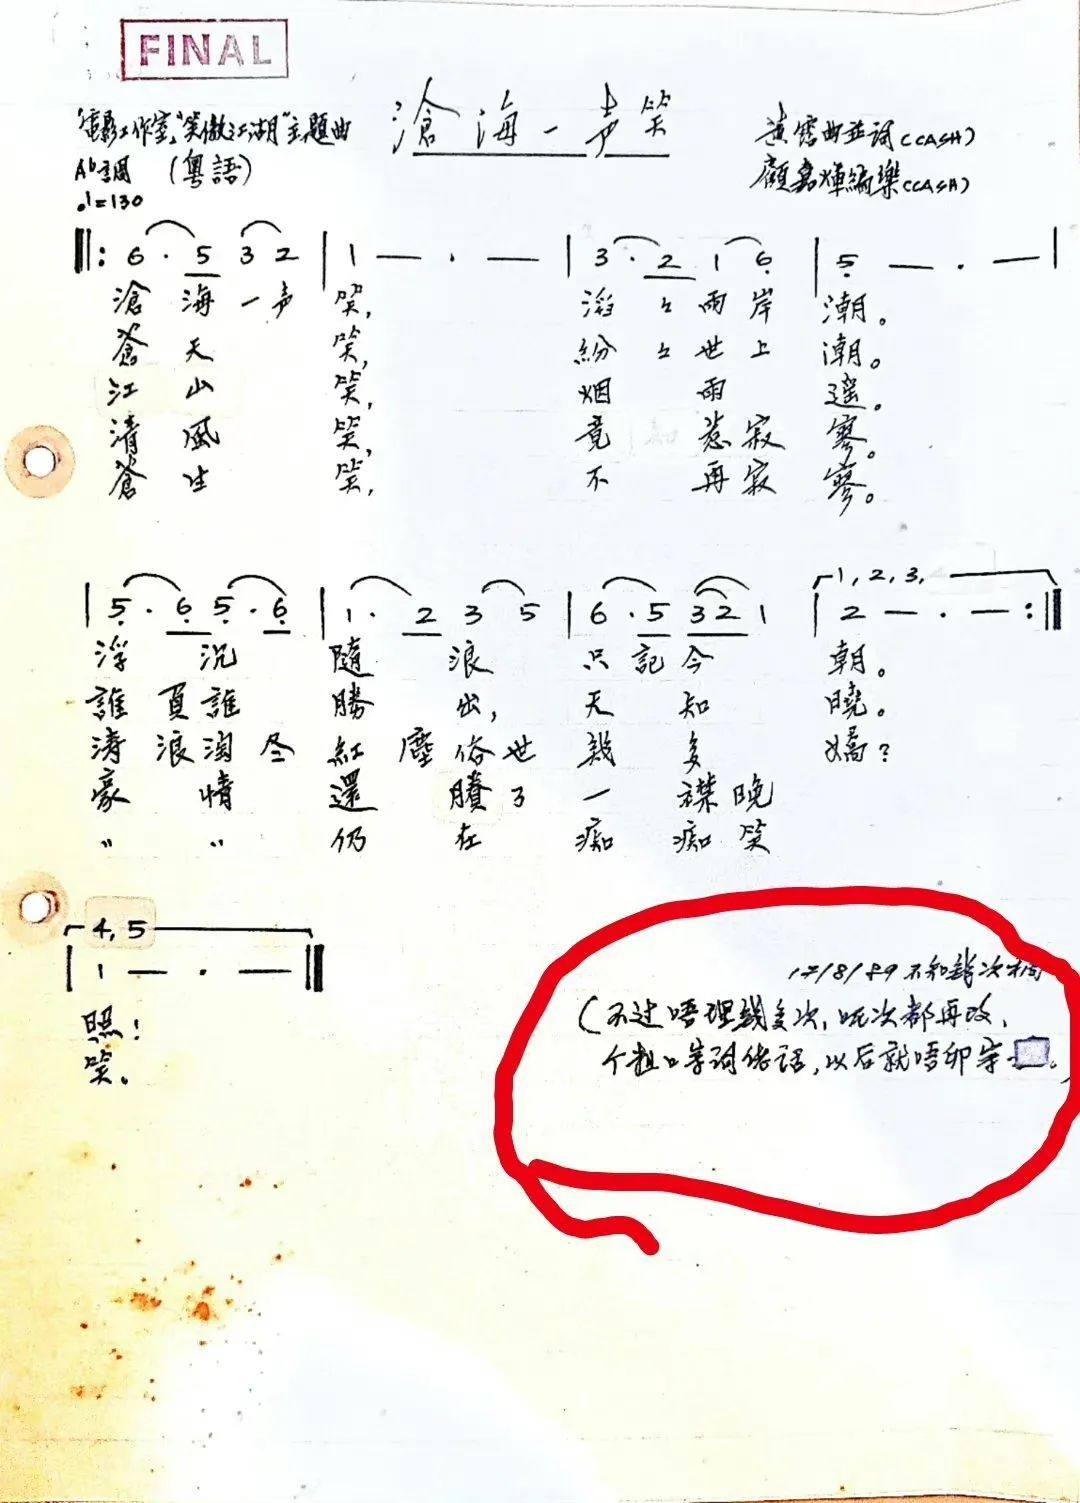 FINAL
滄海一声笑
"電影工作室"，"笑傲江湖"主題曲
(粵語)
A♭調
♩=130
黃霑曲並詞(CASH)
顧嘉煇編樂(CASH)
‖: 6 · 5 3 2 | 1 — · — | 3 · 2 1 6 | 5 — · — |
滄海一声笑，滔々兩岸潮。
蒼天笑，紛々世上潮。
江山笑，烟雨遥。
清風笑，竟惹寂寥。
蒼生笑，不再寂寥。
1, 2, 3,
| 5 · 6 5 · 6 | 1 · 2 3 5 | 6 · 5 3 2 1 | 2 — · — :‖
浮沉隨浪只記今朝。
誰負誰勝出，天知曉。
涛浪淘尽紅塵俗世幾多嬌？
豪情還賸了一襟晚
〃〃仍在痴痴笑
4, 5
| 1 — · — ‖
照！
笑。
17/8/89 不知第次稿
(不过唔理幾多次，呢次都再改，
个粗口岑詞佬話，以后就唔卯宰